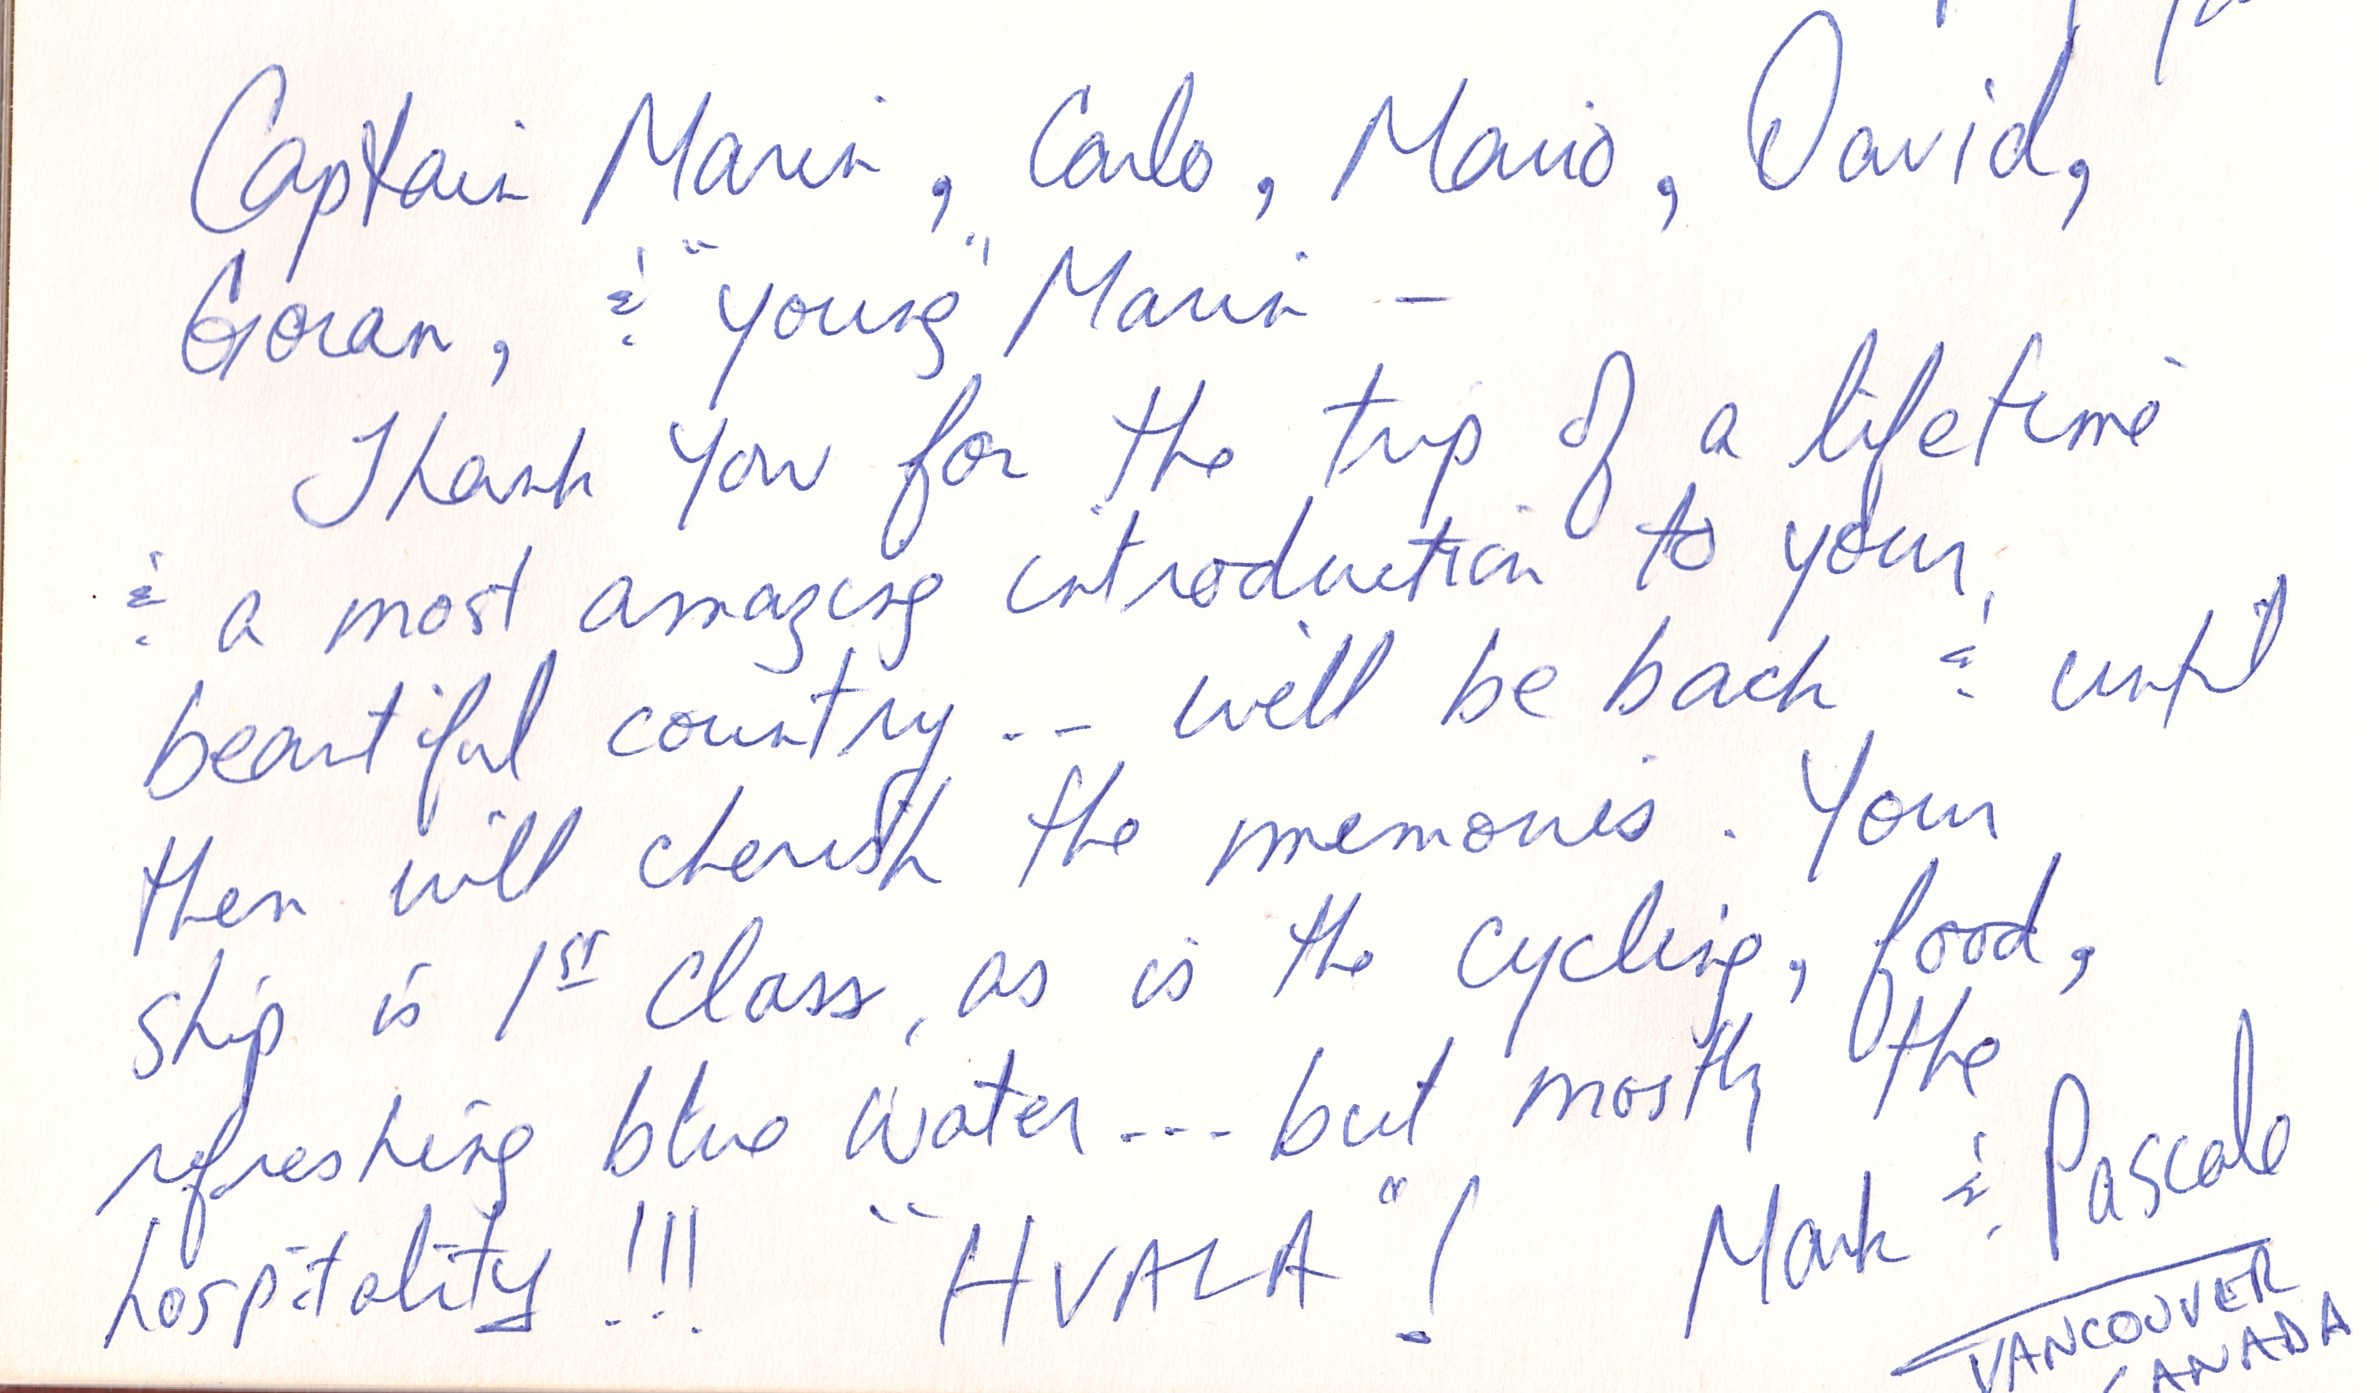 Captain Marin, Carlo, Mario, David,
Goran, & "young" Marin –
Thank you for the trip of a lifetime
& a most amazing introduction to your
beautiful country... will be back & until
then will cherish the memories. Your
ship is 1st class, as is the cycling, food,
refreshing blue water.... but mostly the
hospitality!!! "HVALA"! Mark & Pascale
VANCOUVER
CANADA